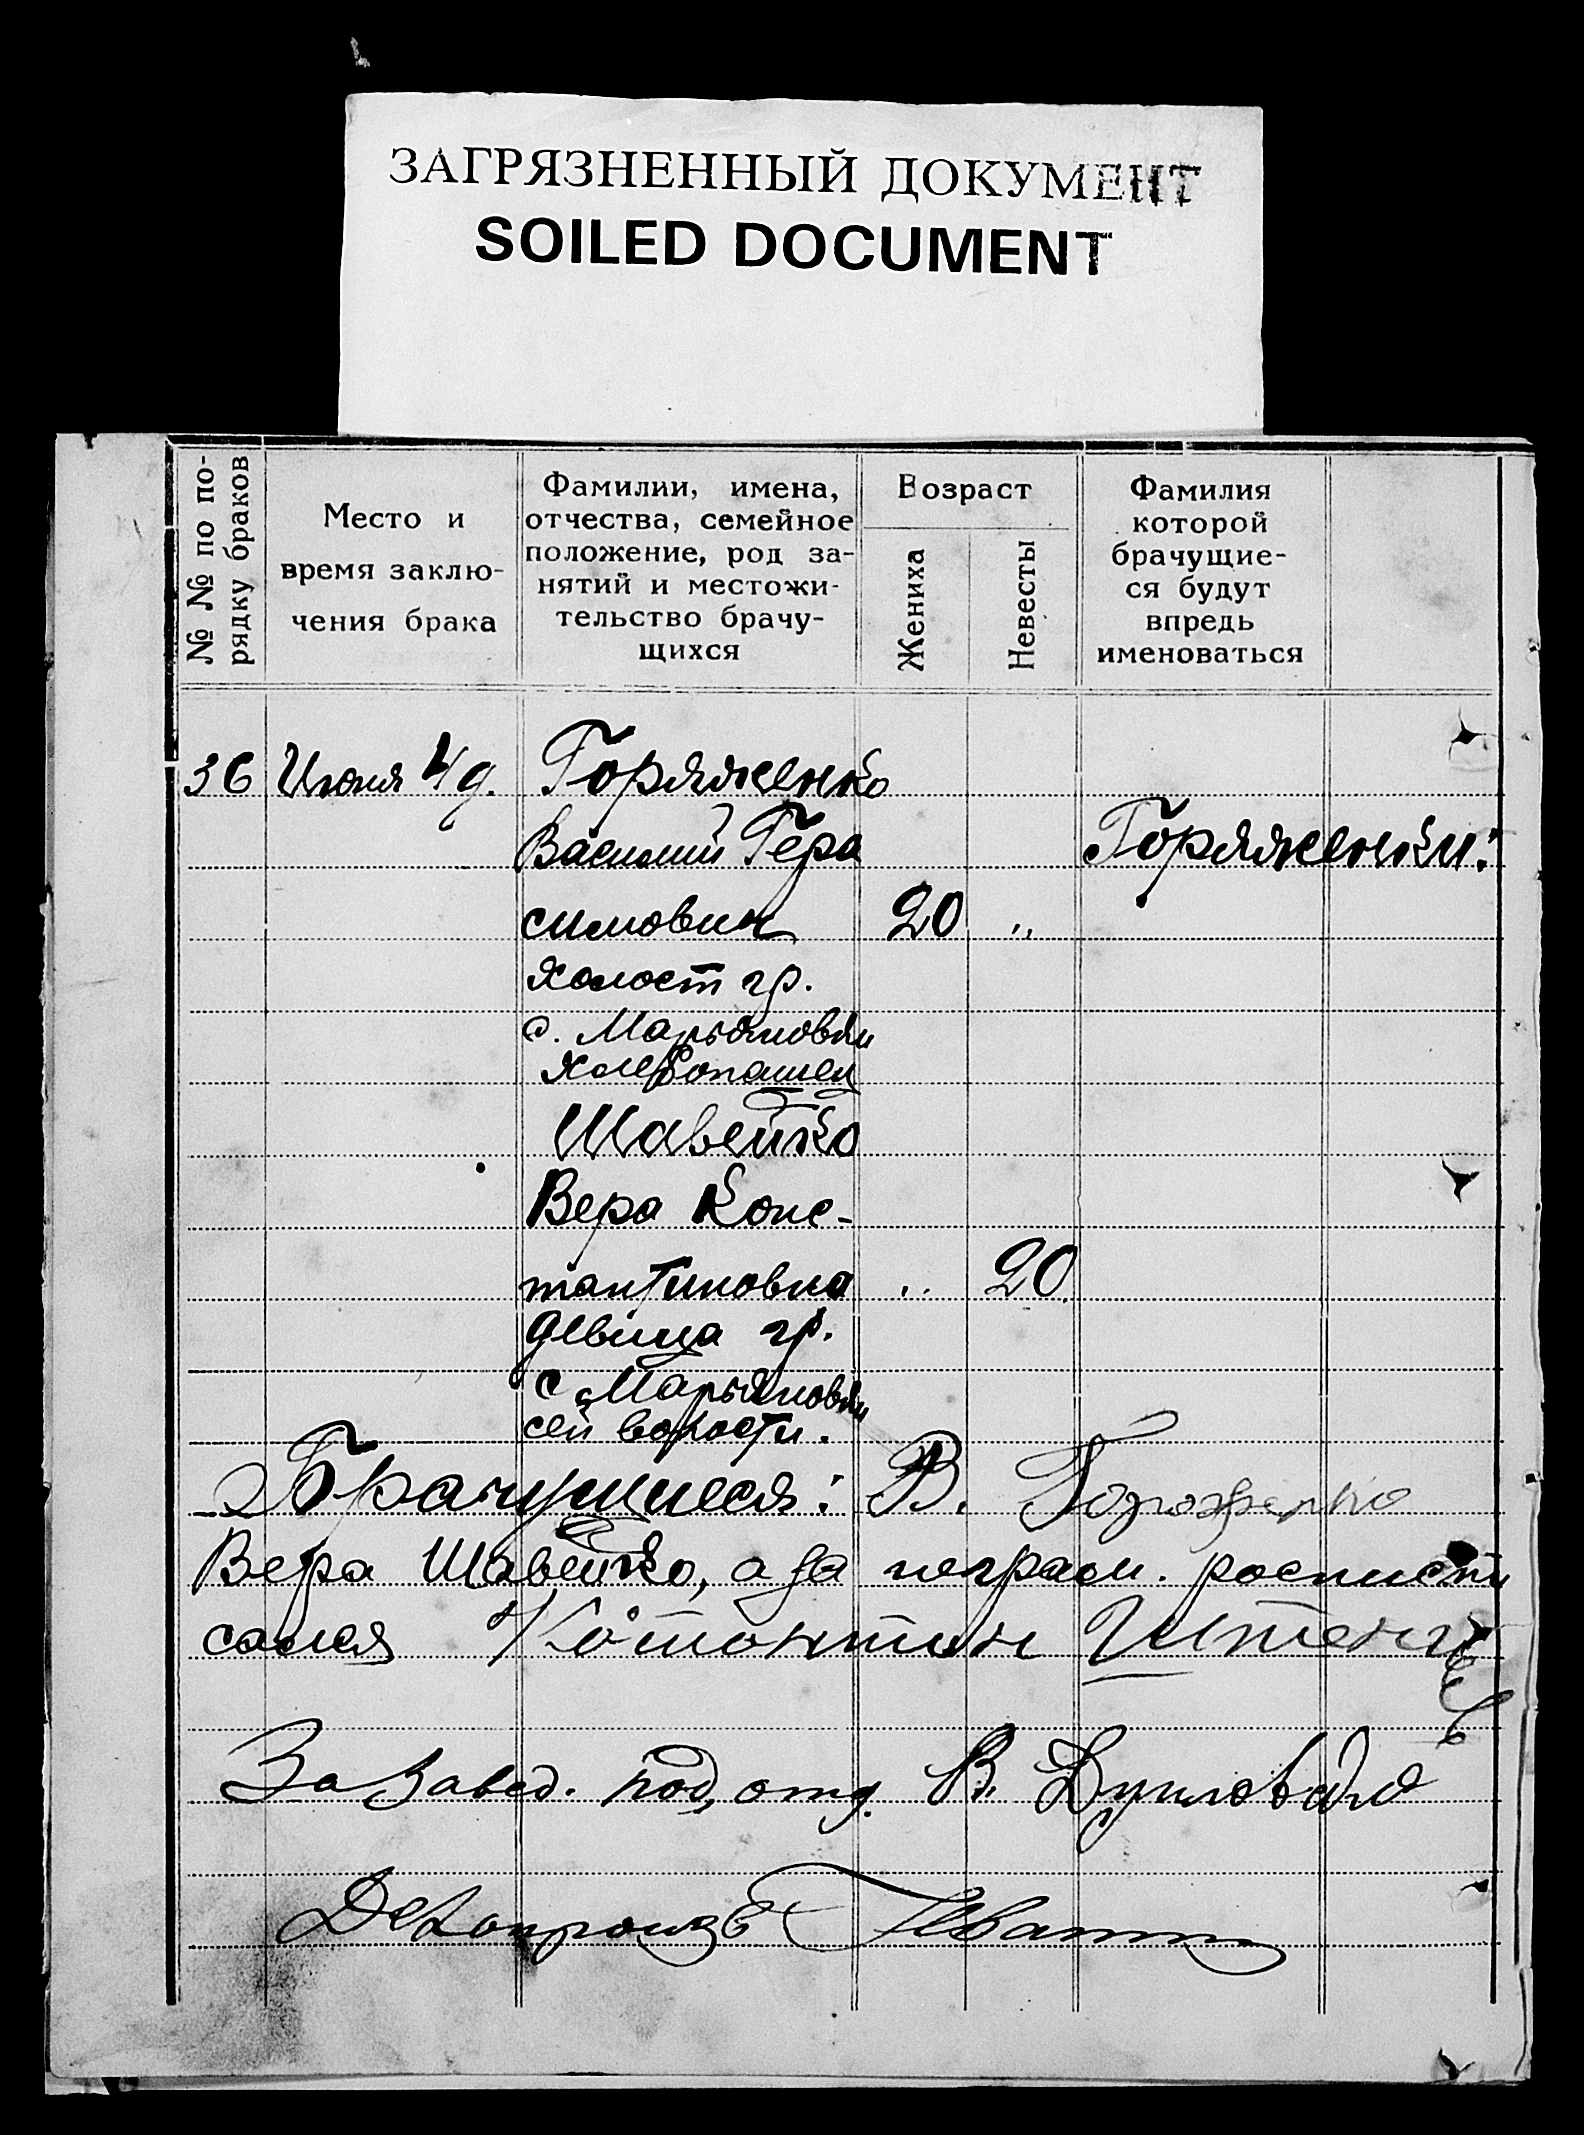 ЗАГРЯЗНЕННЫЙ ДОКУМЕНТ
SOILED DOCUMENT
№ № по по-
рядку браков
Место и
время заклю-
чения брака
Фамилии, имена,
отчества, семейное
положение, род за-
нятий и местожи-
тельство брачу-
щихся
Возраст
Жениха
Невесты
Фамилия
которой
брачущие-
ся будут
впредь
именоваться
36 Июня 4 д. Горяженко
Василий Гера Горяженки.
симович 20 „
холост гр.
с. Марьяновки
хлебопашец
Шавейко
Вера Конс-
тантиновна „ 20
девица гр.
с. Марьяновки
сей волости.
Брачущиеся: В.
Вера Шавейко, а за неграм.
За Завед. под, отд. В.
Делопроизв